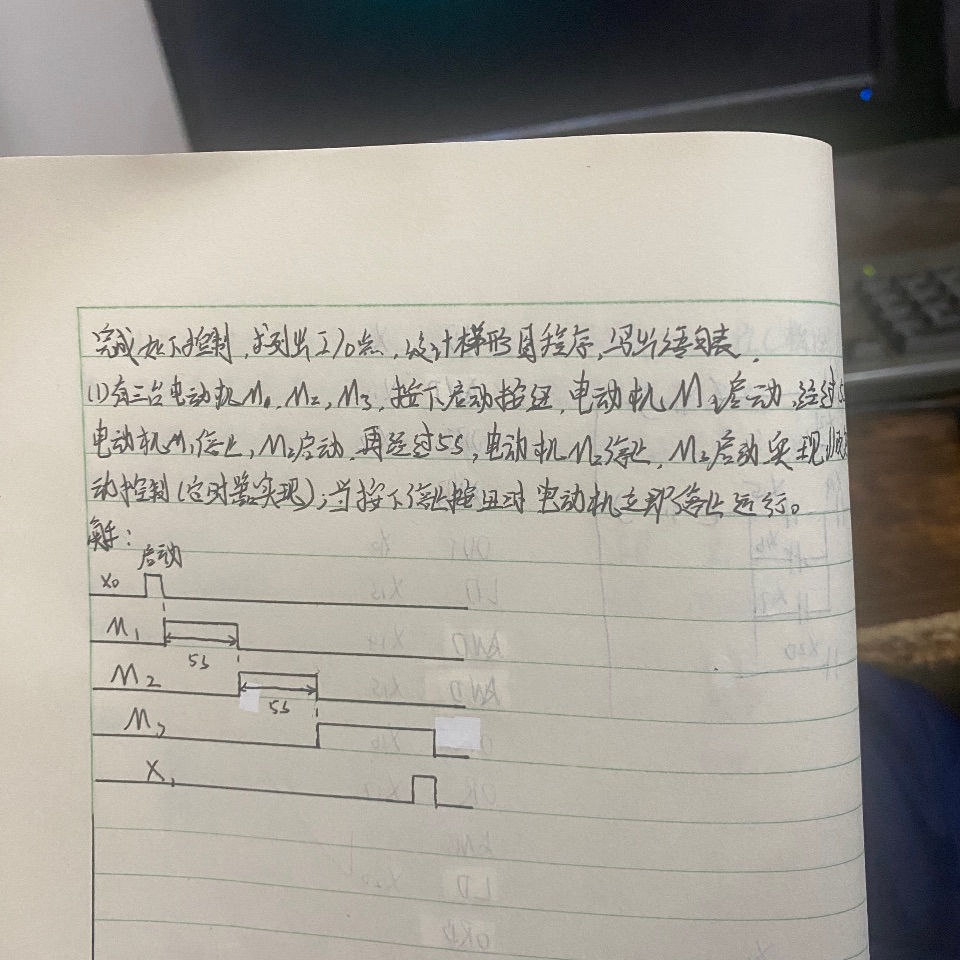 完成如下控制,求列出I/O点,设计梯形图程序,写出语句表.
(1)有三台电动机M1、M2,M3,按下启动按钮,电动机M1启动,经过5
电动机M1停止,M2启动,再经过5s,电动机M2停止,M3启动实现
动控制(定时器实现);当按下停止按钮时电动机立即停止运行。
解:
启动
X0
M1
5s
M2
5s
M3
X1